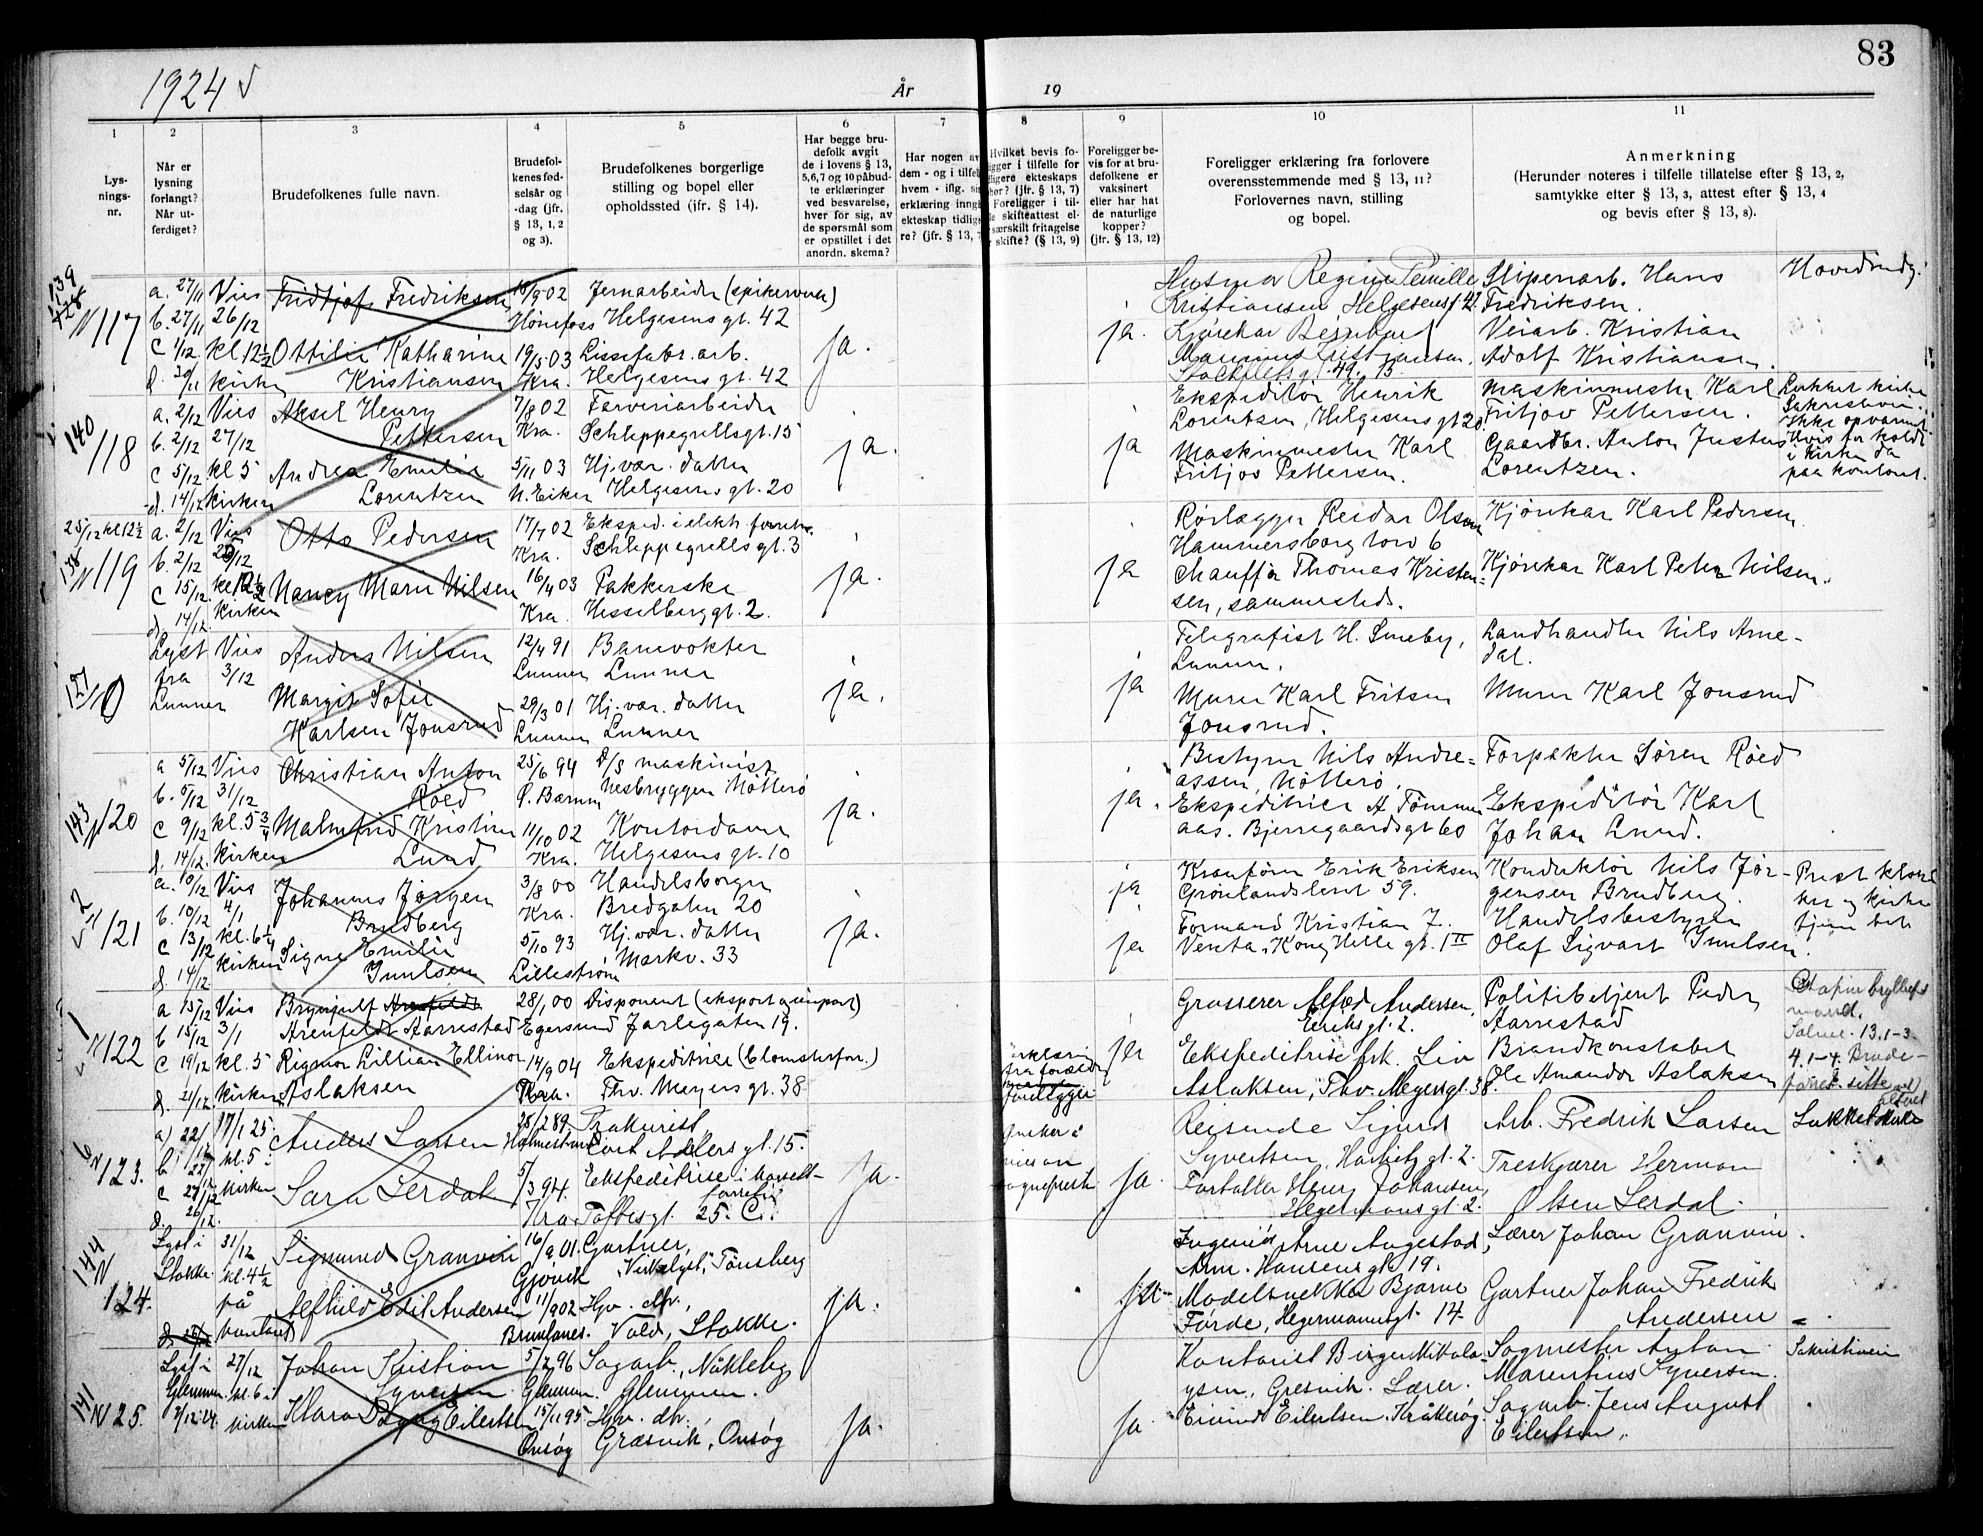 83
1924
År
19
1
2
3
4
5
6
7
8
9
10
11
Lys-
nings-
nr.
Når er
lysning
forlangt?
Når ut-
ferdiget?
Brudefolkenes fulle navn.
Brudefol-
kenes fød-
selsår og
-dag (jfr.
§ 13, 1, 2
og 3).
Brudefolkenes borgerlige
stilling og bopel eller
opholdssted (jfr. § 14).
Har begge bru-
defolk avgit
de i lovens § 13,
5, 6, 7 og 10 påbud-
te erklæringer
ved besvarelse,
hver for sig, av
de spørsmål som
er opstillet i det
anordn. skema?
Har nogen av
dem - og i tilfel
hvem - iflg. sin
erklæring inngå
ekteskap tidlige
re? (jfr. § 13,
Hvilket bevis fo-
ligger i tilfelle for
ligere ekteskaps
hør? (jfr. § 13, 7)
Foreligger i til-
le skifteattest el-
særskilt fritagelse
skifte? (§ 13, 9)
Foreligger be-
vis for at bru-
defolkene er
vaksinert
eller har hat
de naturlige
kopper?
(jfr. § 13, 12)
Foreligger erklæring fra forlovere
overensstemmende med § 13, 11?
Forlovernes navn, stilling
og bopel.
Anmerkning
(Herunder noteres i tilfelle tillatelse efter § 13, 2,
samtykke efter § 13, 3, attest efter § 13, 4
og bevis efter § 13, 8).
139
117
a. 27/11 Vies
b. 27/11 26/12
c 1/12 kl 12½
d. 30/11 kirken
Fridtjof Fredriksen
Ottilie Katharine
Kristiansen
Hønefoss
19/5 03
Kra.
Jernarbeider (spikerverk)
Helgesens gt. 42
Lissefabr. arb.
Helgesens gt. 42
ja.
ja.
Hustru Regine Pernille
Kristiansen Helgesensgt 42.
Kjørekar Bernhard
Slipenarb. Hans
Fredriksen.
Veiarb. Kristian
Adolf Kristiansen.
140
118
a. 2/12 Vies
b. 2/12 27/12
c 5/12 kl 5
d. 14/12 kirken
Aksel Henry
Pettersen
Andrea Emilie
Lorentzen
7/8 02
Kra.
5/11 03
N. Eiker
Farveriarbeider
Schleppegrellsgt. 15
Hj. vær. datter
Helgesens gt. 20
ja.
ja
Ekspeditør Henrik
Lorentzen, Helgesens gt 20.
Maskinmester Karl
Fritjov Pettersen.
Maskinmester Karl
Fritjov Pettersen.
Gaardbr. Anton Justus
Lorentzen.
Lukket kirke
Sakristiet.
Ikke opvarmet
Hvis for koldt
i kirken da
paa kontoret.
25/12 kl 12½
138
119
a. 2/12 Vies
b. 2/12
c 15/12
d. 14/12 kirken
Otto Pedersen
Nancy Marie Nilsen
17/7 02
Kra.
16/4 03
Kra.
Eksped. i elektr. forretn.
Schleppegrells gt. 3
Pakkerske
Hesselberg gt. 2.
ja.
ja
Rørlægger Reidar Olsen
Hammersborg torv 6
Chauffør Thomas Kristen-
sen, sammesteds.
Kjørekar Karl Pedersen
Kjørekar Karl Peter Nilsen.
127
0
Lyst Vies
fra 3/12
Lunner
Anders Nilsen
Margit Sofie
Karlsen Jonsrud
12/4 91
Lunner
29/3 01
Lunner
Banevokter
Lunner
Hj. vær. datter
Lunner
ja.
ja
Telegrafist H. Smeby,
Lunner.
Murer Karl Fritsen
Jonsrud.
Landhandler Nils Arne-
dal.
Murer Karl Jonsrud
143
120
a 5/12 Vies
b. 5/12 31/12
c 9/12 kl. 5¾
d. 14/12 kirken
Christian Anton
Röed
Malmfrid Kristine
Lund
25/6 94
Ø. Bærum
11/10 02
Kra.
D/S maskinist
Nesbryggen Nötterö
Kontordame
Helgesens gt. 10
ja.
ja.
Bestyrer Nils Andre-
assen, Nötterö.
Ekspeditrice A. Tømmer-
aas. Bjerregaardsgt 60
Forpakter Søren Röed
Ekspeditör Karl
Johan Lund.
2
121
a. 10/12 Vies
b. 10/12 4/1
c 13/12 kl. 6¼
d. 14/12 kirken
Johannes Jørgen
Brudberg
Signe Emilie
3/8 00
Kra.
5/10 93
Lillestrøm
Handelsborger
Bredgaten 20
Hj. vær. datter
Markv. 33
ja.
ja
ja
Kranfører Erik Eriksen
Grønlandsleret 59.
Formand Kristian J.
Konduktör Nils Jør-
gensen Brudberg.
Handelsbestyrer
Olaf Sigvart
1
122
a 15/12 Vies
b 15/12 3/1
c 19/12 kl. 5
d. 21/12 kirken
Brynjulf Arenfeldt
Arenfeldt Aarrestad
Rigmor Lillian Ellinor
Aslaksen
28/1 00
Egersund
14/9 04
Kra.
Disponent (eksport & import)
Jarlegaten 19.
Ekspeditrice (blomsterforr.)
Thv. Meyers gt. 38
foreligger
ja
Grosserer Alfred Andersen,
Eriks gt. 2.
Ekspeditrise frk. Liv
Aslaksen, Thv. Meyersgt. 38.
Politibetjent Peder
Aarrestad
Brandkonstabel
Ole Amandor Aslaksen
Salme. 13. 1-3.
4. 1-4. Brude-
parret sitte ved
alteret
6
123.
a) 22/12 17/1 25.
kl. 5
kirken
Anders Larsen
Sara Lerdal
28/2 89
Holmestrand
5/3 94.
Kra.
Prokurist
Cort Adelers gt. 15.
Ekspeditrise i
Toftesgt. 25. C.
ja.
ja.
Reisende Sigurd
Syvertsen, Harbitz gt. 2.
Henry Johansen,
Hegermansgt. 2.
Arb. Fredrik Larsen
Treskjærer Herman
Olsen Lerdal.
Lukket kirke
144
124.
Lyst i 31/12
Stokke. kl. 4½
på
kontoret
Sigmund Granvin
Alfhild Edit Andersen
16/9 01.
Gjøvik
11/9 02
Brunlanes.
Gartner,
Tønsberg
Hjv. dtr.,
Vold, Stokke.
ja.
ja
Ingeniør Arne Augestad,
Arne. Hansens gt. 19.
Modelsnekker Bjarne
Førde, Hegermansgt. 14
Lærer Johan Granvin.
Gartner Johan Fredrik
Andersen
141
125.
Lyst i 27/12
Glemmen kl. 6
kirken
Johan Kristian
Syversen
Klara Eilertsen
5/2 96
Glemmen.
15/11 95
Onsøy
Sagarb., Nökleby
Glemmen.
Hjv. dtr.
Græsvik, Onsøy
ja.
ja.
Kontorist Birger Nikola-
ysen, Gresvik. Lærer
Eivind Eilertsen, Kråkerøy.
Sagmester Anton
Marentius Syversen.
Sagarb. Jens August
Eilertsen.
Sakristien